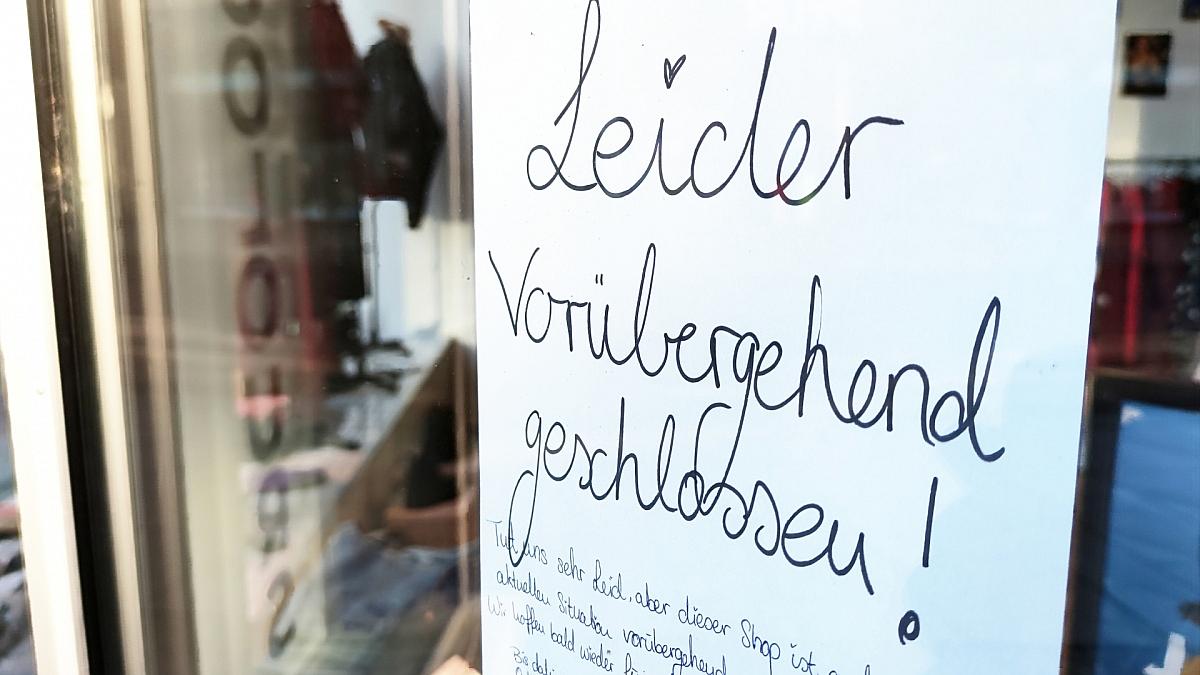 Leider
Vorübergehend
geschlossen!
Tut uns sehr Leid, aber dieser Shop ist
aktuellen Situation vorübergehend
Wir hoffen bald wieder für
Bis